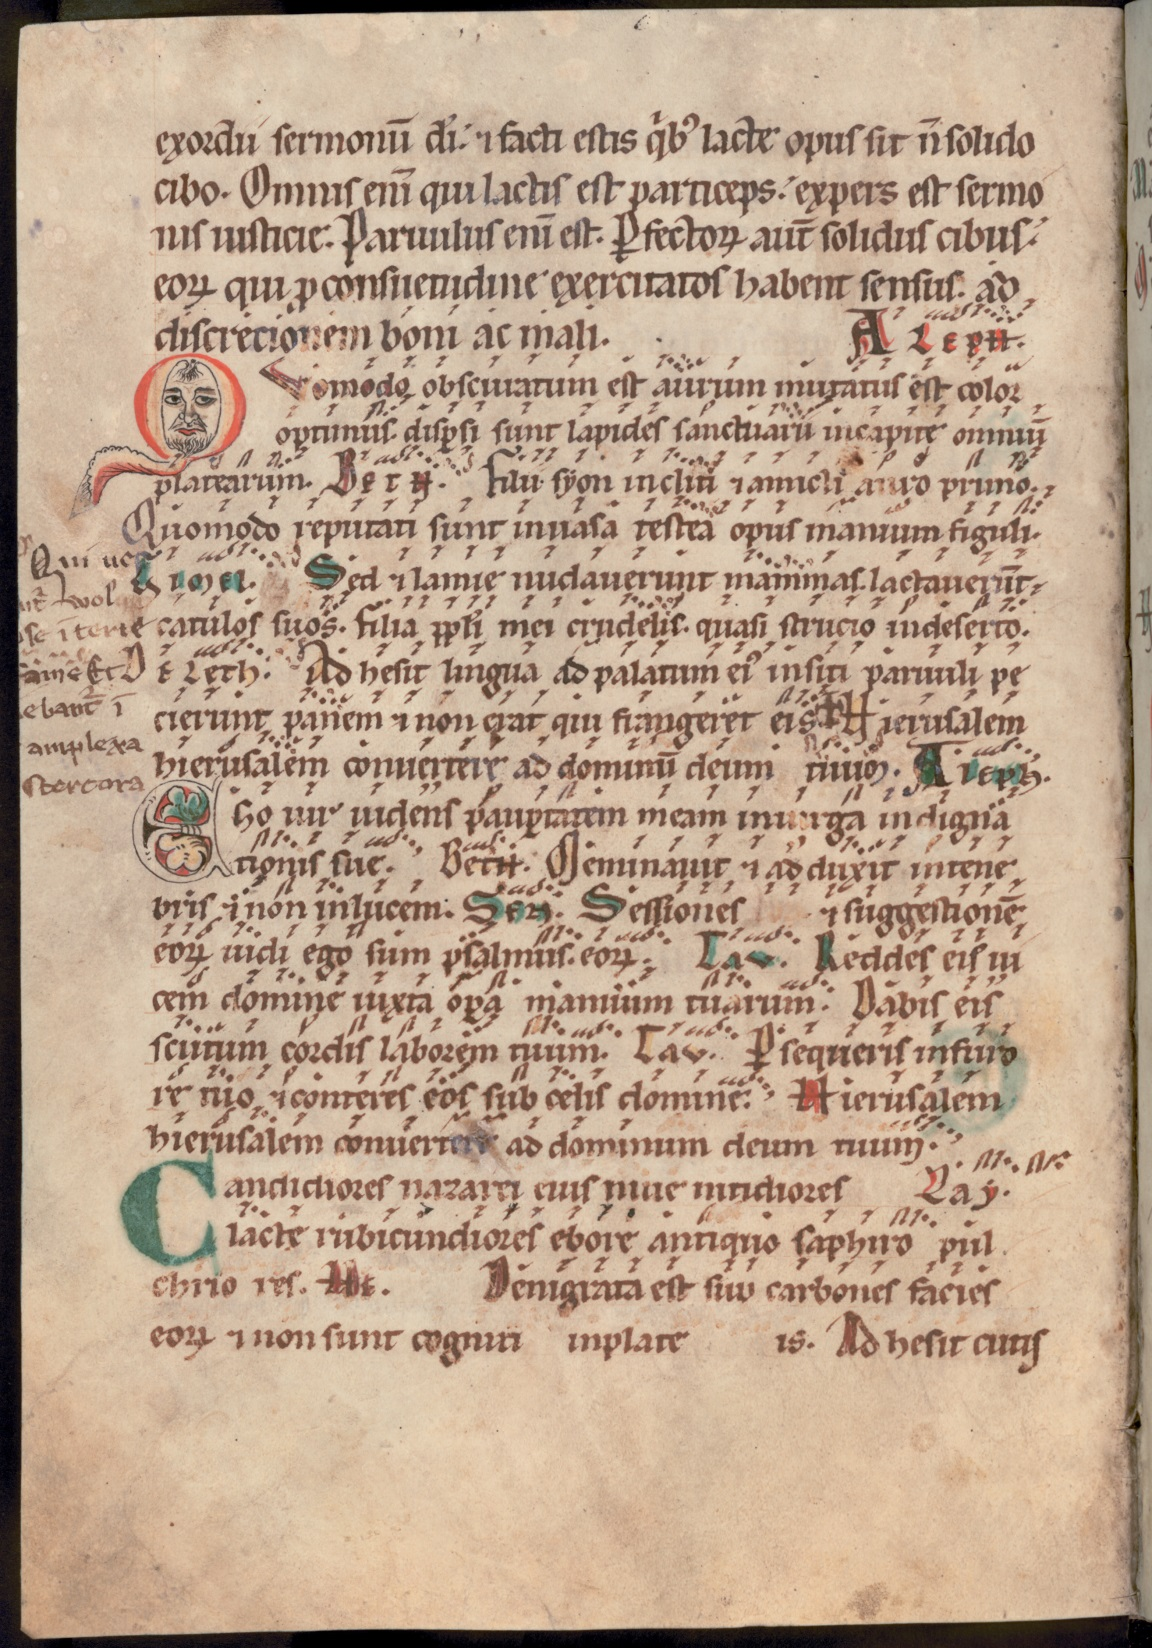 exordii sermonū di. ⁊ facti estis qͥbꝰ lacte opus sit n̄ solido
cibo. Omnis enī qui lactis est particeps. expers est sermo
nis iusticie. Paruulus enī est. Ꝑfectoꝝ aut̄ solidus cibus.
eoꝝ qui ꝓ consuetudine exercitatos habent sensus. ad
discrecionem boni ac mali. ALEPH.
Quomodo obscuratum est aurum mutatus est color
optimus. dispsi sunt lapides sanctuarii incapite omniū
platearum. BETH. Filii syon incliti ⁊ amicti auro primo.
Quomodo reputati sunt inuasa testea opus manuum figuli.
Gimel. Sed ⁊ lamie nudauerunt mammas. lactauerūt
catulos suos. filia ppli mei crudelis. quasi strucio indeserto.
Deleth. Ad hesit lingua ad palatum eiꝰ insiti paruuli pe
cierunt panem ⁊ non erat qui frangeret eis. Hierusalem
hierusalem conuertere ad dominū deum tuum. Aleph.
EGo uir uidens pauptatem meam inuirga indignā
tionis sue. Beth. Geminauit ⁊ ad duxit intene
bris. ⁊ non inlucem. Sen. Sessiones ⁊ suggestionē
eoꝝ uidi ego sum psalmus. eoꝝ. Tav. Reddes eis ui
cem domine iuxta opa manuum tuarum. Dabis eis
scutum cordis laborem tuum. Tav. Ꝑsequeris infuro
re tuo ⁊ conteres eos sub celis domine. Hierusalem
hierusalem conuertere ad dominum deum tuum.
Candidiores nazarei eius niue nitidiores Zay.
lacte rubicundiores ebore antiquo saphiro pul
chrio res. He. Denigrata est sup carbones facies
eoꝝ ⁊ non sunt cogniti inplate is. Ad hesit cutis
Qui ue
uol
ī terie
Et
ebant̄ ī
amplexa
stercora